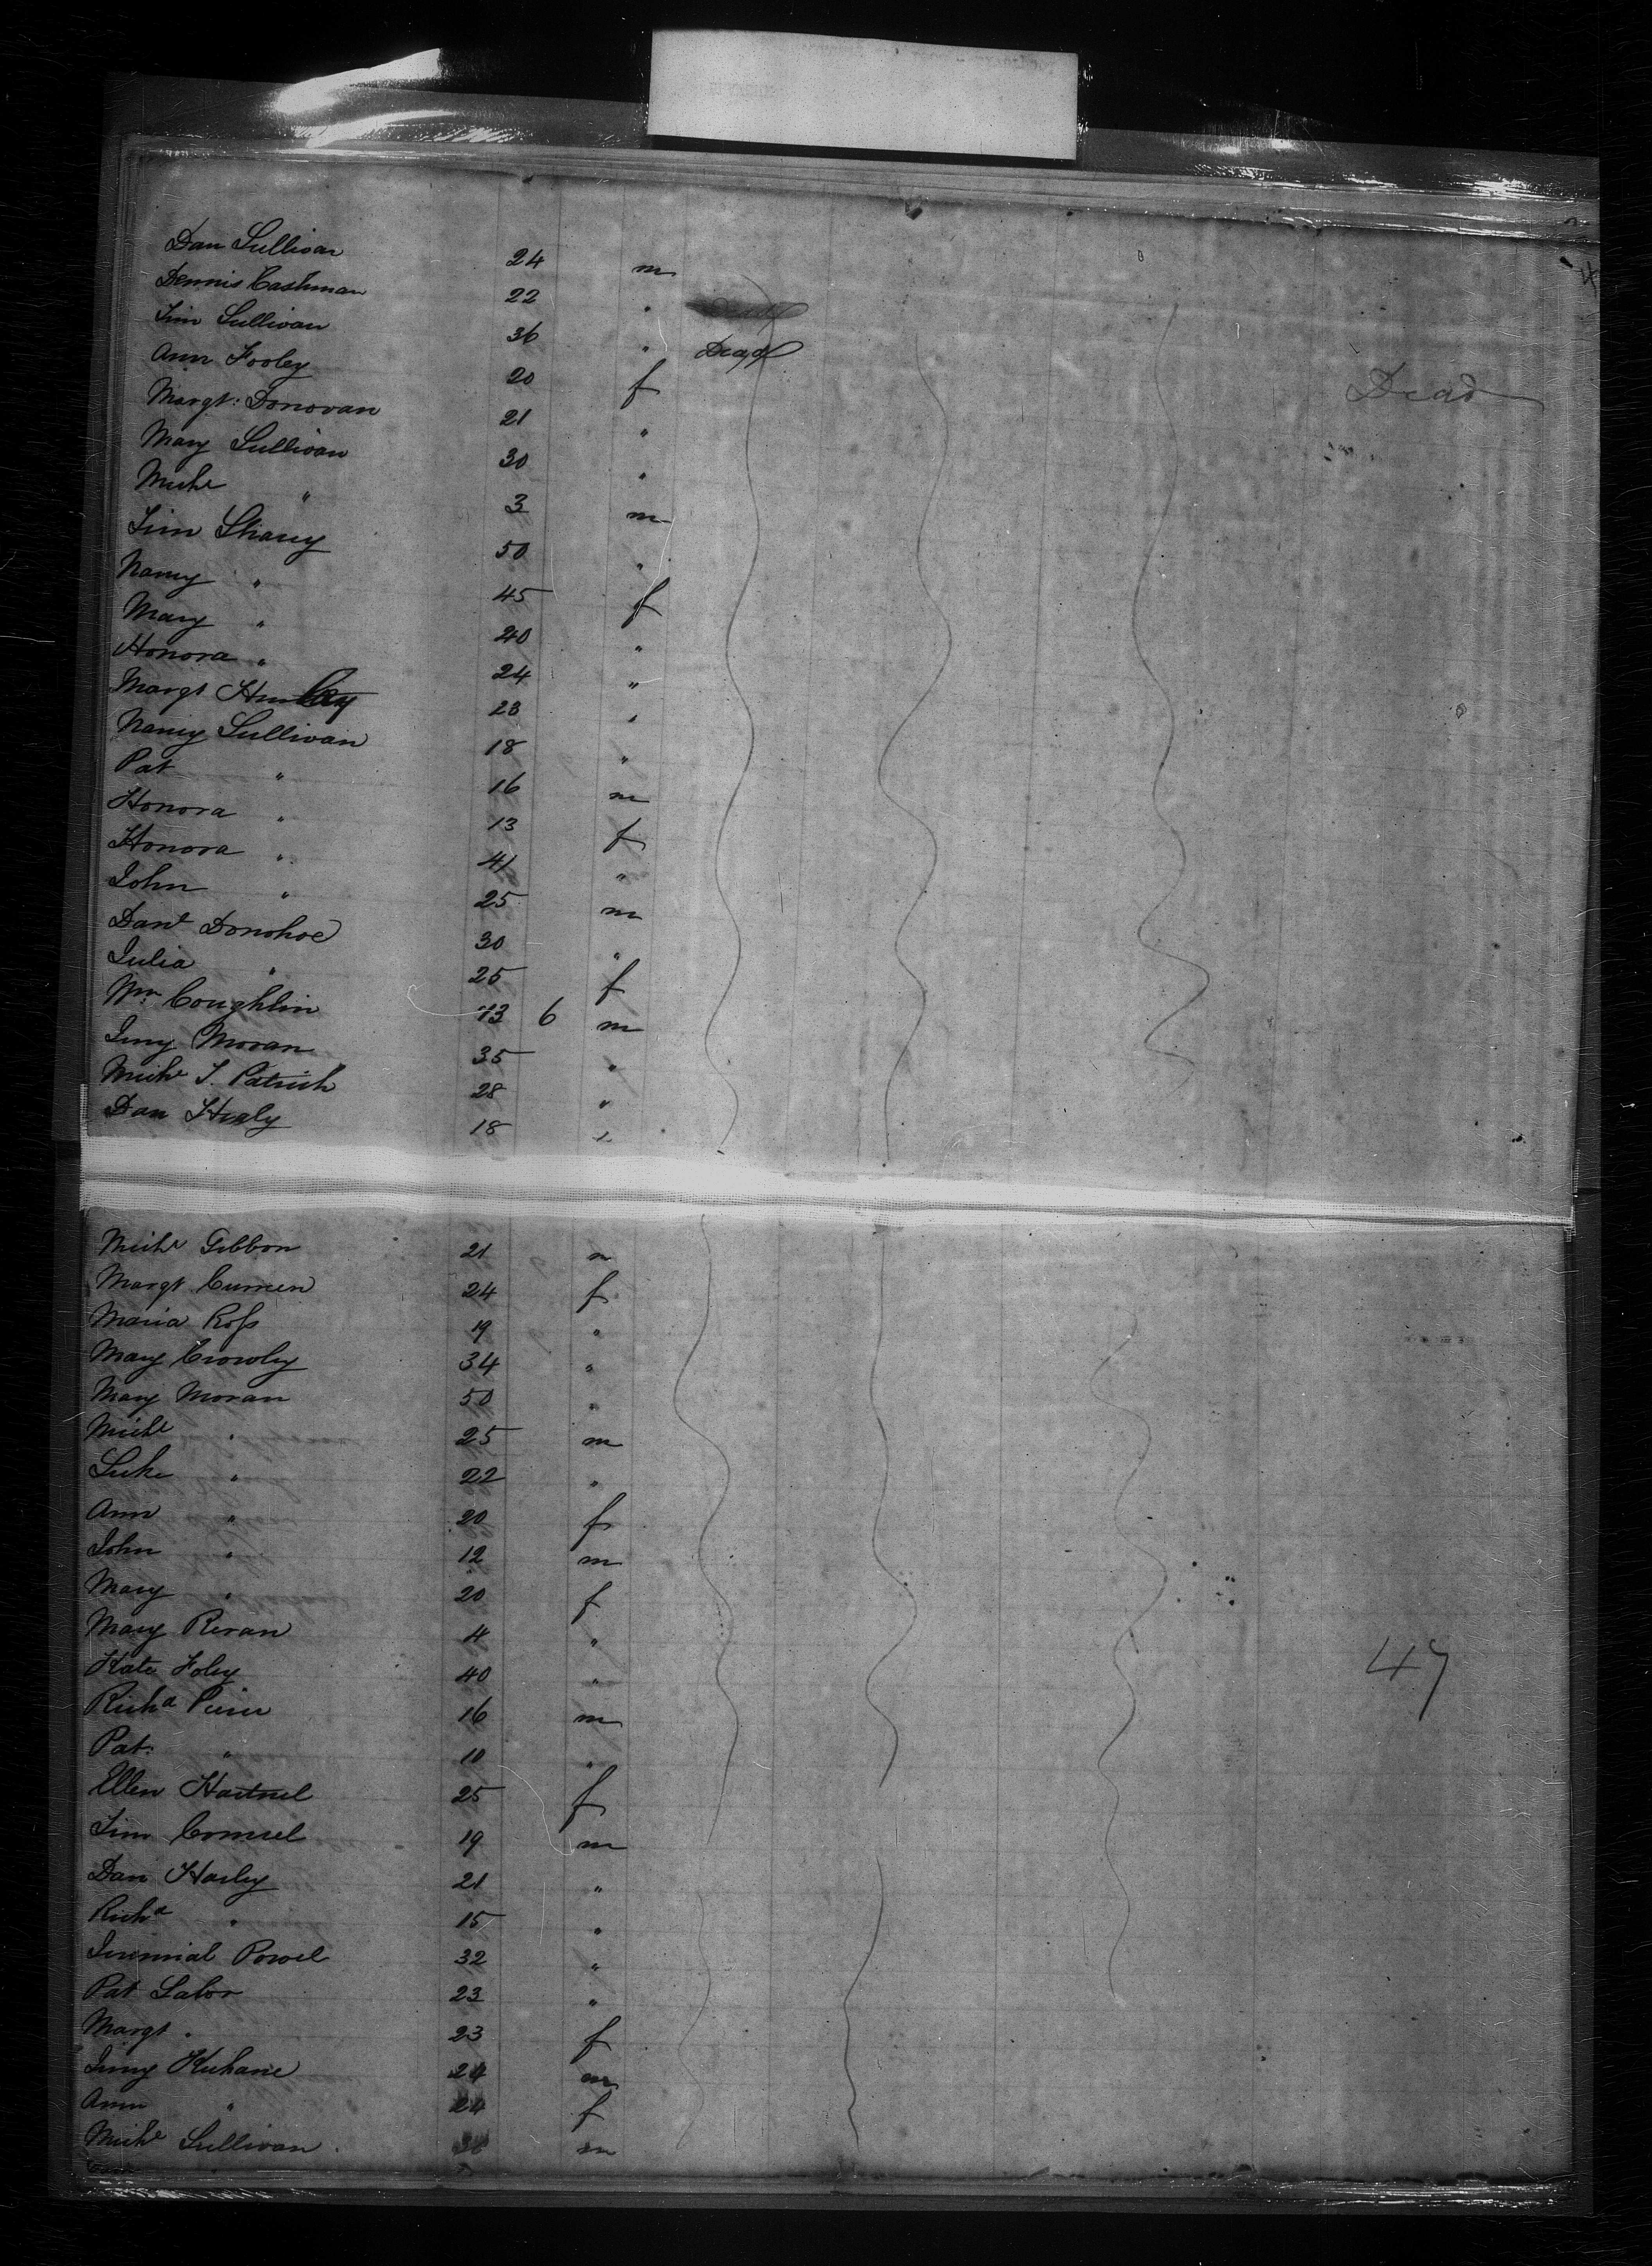 Dan Sullivan 24 m
Dennis Cashman 22 "
Tim Sullivan 36 " Dead
Ann Fooley 20 f Dead
Margt: Donovan 21 "
Mary Sullivan 30 "
Michl " 3 m
Tim Sharry 50 "
Nancy " 45 f
Mary " 20 "
Honora " 24 "
Margt 23 "
Nancy Sullivan 18 "
Pat " 16 m
Honora " 13 f
Honora " 41 "
John " 25 m
Danl Donohoe 30 "
Julia " 25 f
Wm Coughlin 73 6 m
Jimy Moran 35 "
Michl T. Patrick 28 "
Dan Healy 18 "
Michl Gibbon 21 m
Margt Cumen 24 f
Maria Ross 19 "
Mary Crowley 34 "
Mary Moran 50 "
Michl " 25 m
Luke " 22 "
Ann " 20 f
John " 12 m
Mary " 20 f
Mary Revan 4 "
Kate Foley 40 " 47
Richd 16 m
Pat: " 10 "
Ellen Hartnel 25 f
Tim 19 m
Dan Harley 21 "
Richd " 15 "
Powel 32 "
Pat Lalor 23 "
Margt " 23 f
Jimy Kuhane 24 m
Ann " 24 f
Michl Sullivan m